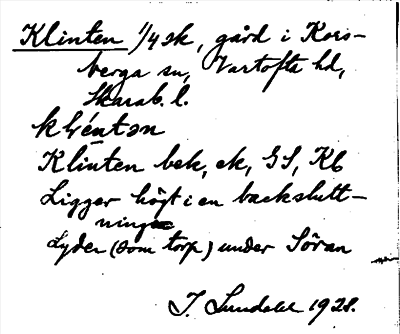 Klinten 1/4 sk, gård i Kors-
berga sn, Vartofta hd,
Skarab. l.
klɩ́entən
Klinten bek, ek, GS, Kb
Ligger högt i en backslutt-
ning
Lyder (som torp) under Söran
J. Lundahl 1928.